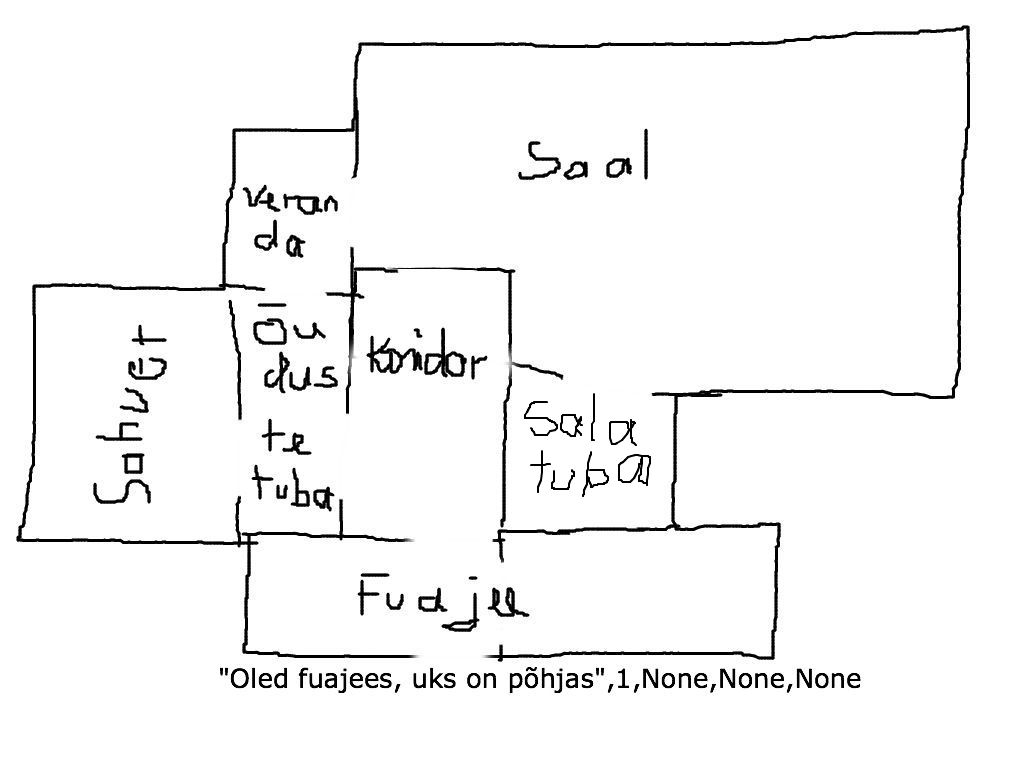 Saal
veran
da
Sahver
Õu
dus
te
tuba
Koridor
Sala
tuba
Fuajee
"Oled fuajees, uks on põhjas",1,None,None,None